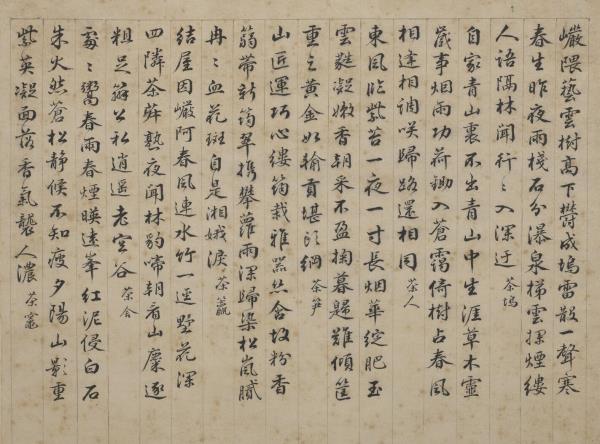 巖隈藝雲樹高下欝成塢雷散一聲寒
春生昨夜雨棧石分瀑泉梯雲探煙縷
人語隔林聞行〻入深迂 茶塢
自家青山裏不出青山中生涯草木靈
歲事烟雨功荷鋤入蒼靄倚樹占春風
相逢相調咲歸路還相同 茶人
東風吹紫苔一夜一寸長烟華綻肥玉
雲蕤凝嫩香朝采不盈掬暮歸難傾筐
重之黃金如輸貢堪頭綱 茶筍
山匠運巧心縷筠裁雅器絲含故粉香
蒻帶新筠翠携攀蘿雨深歸染松嵐膩
冉〻血花斑自是湘娥淚 茶籯
結屋因巖阿春風連水竹一逕墅花深
四隣茶荈熟夜聞林豹啼朝看山麋逐
粗足辦公私逍遥老空谷 茶舍
處〻鬻春雨春煙暎遠峯紅泥侵白石
朱火然蒼松靜候不知疲夕陽山影重
紫英凝面落香氣襲人濃 茶竈